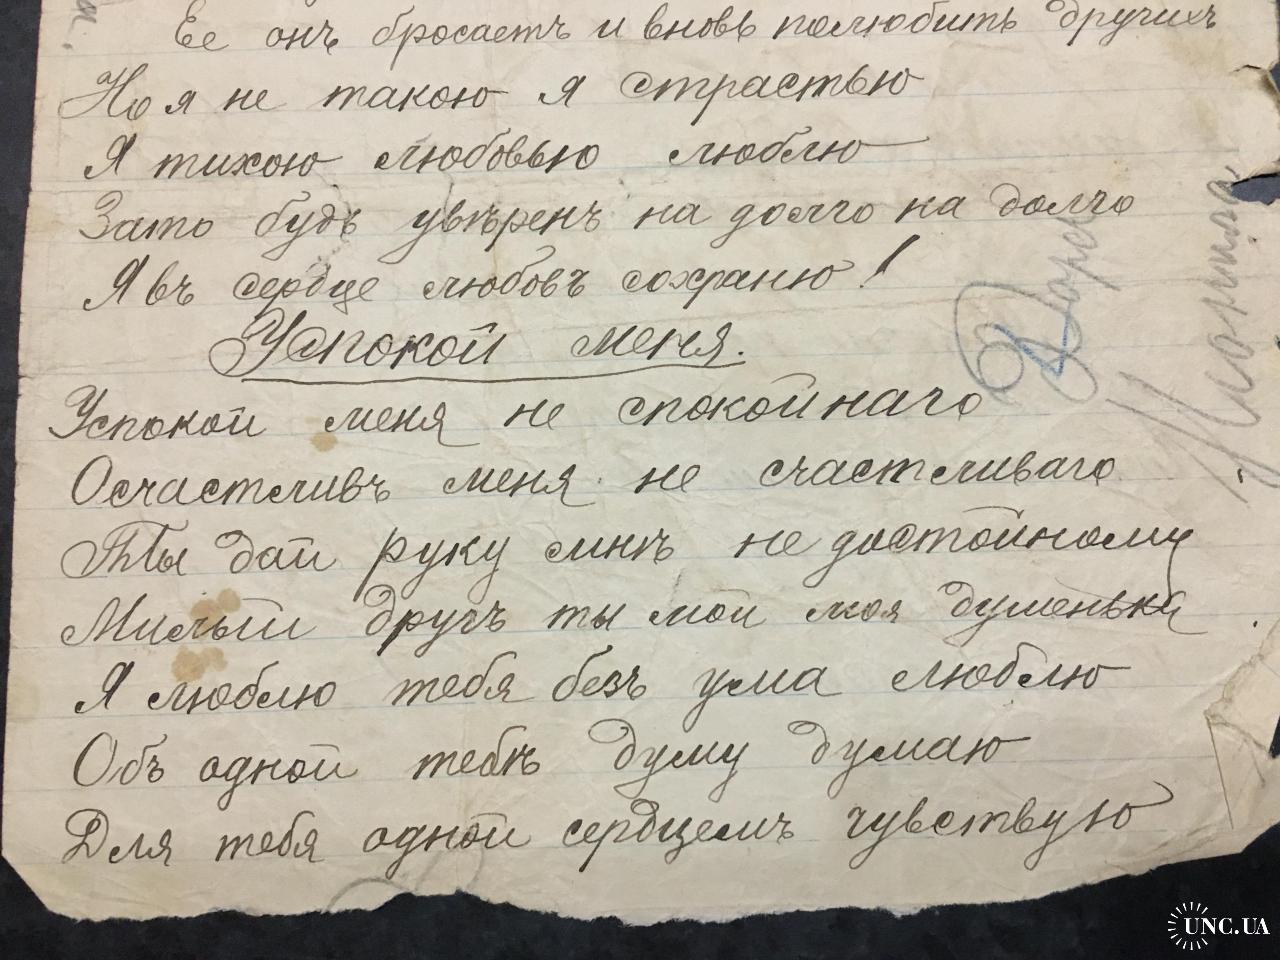 Ее онъ бросаетъ и вновь полюбитъ другихъ
Но я не такою я страстью
Я тихою любовью люблю
Зато будь увѣренъ на долго на долго
Я въ сердце любовь сохраню!
Успокой меня.
Успокой меня не спокойнаго
Осчастливъ меня не счастливаго
Ты дай руку мнѣ не достойному
Милый другъ ты мой моя думенька
Я люблю тебя безъ ума люблю
Объ одной тебѣ думу думаю
Для тебя одной сердцемъ чувствую
UNC.UA